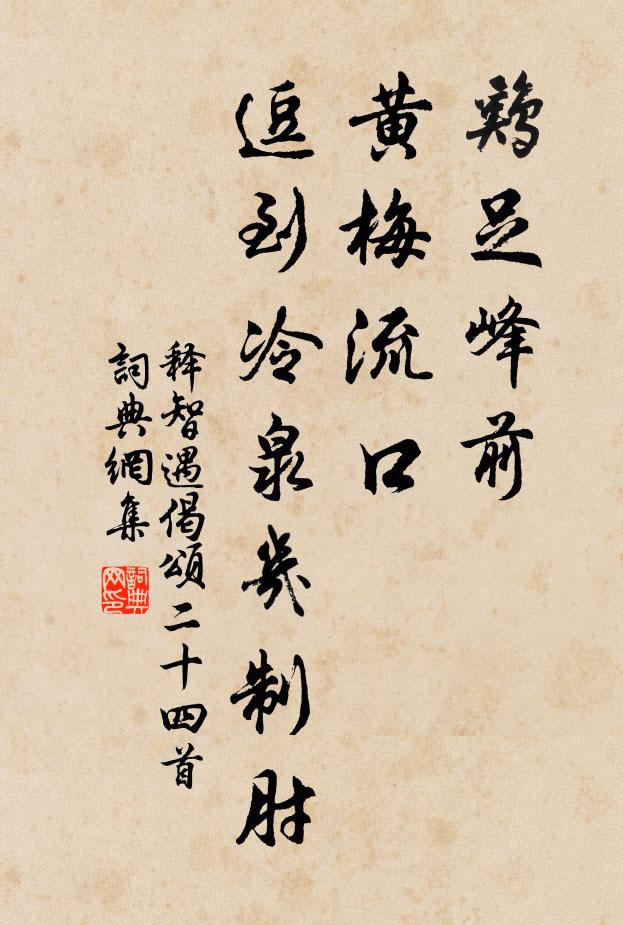 鷄足峰前
黄梅流口
逗到冷泉幾制肘
释智遇偈頌二十四首
詞典網集
詞典网印